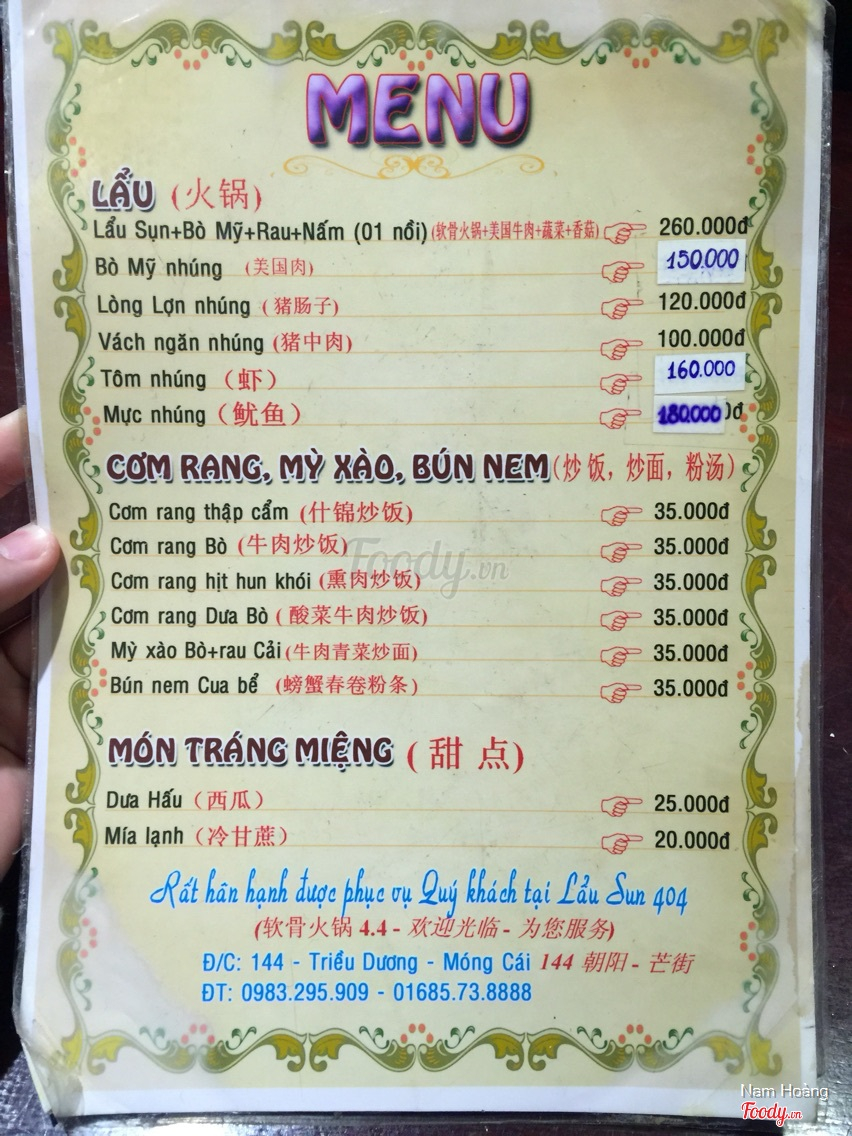 MENU
LẨU (火锅)
Lẩu Sụn+Bò Mỹ+Rau+Nấm (01 nồi) (软骨火锅+美国牛肉+蔬菜+香菇) 260.000đ
Bò Mỹ nhúng (美国肉) 150.000
Lòng Lợn nhúng (猪肠子) 120.000đ
Vách ngăn nhúng (猪中肉) 100.000đ
Tôm nhúng (虾) 160.000
Mực nhúng (鱿鱼) 180.000đ
CƠM RANG, MỲ XÀO, BÚN NEM (炒饭, 炒面, 粉汤)
Cơm rang thập cẩm (什锦炒饭) 35.000đ
Cơm rang Bò (牛肉炒饭) 35.000đ
Foody.vn
Cơm rang hịt hun khói (熏肉炒饭) 35.000đ
Cơm rang Dưa Bò (酸菜牛肉炒饭) 35.000đ
Mỳ xào Bò+rau Cải (牛肉青菜炒面) 35.000đ
Bún nem Cua bể (螃蟹春卷粉条) 35.000đ
MÓN TRÁNG MIỆNG (甜点)
Dưa Hấu (西瓜) 25.000đ
Mía lạnh (冷甘蔗) 20.000đ
Rất hân hạnh được phục vụ Quý khách tại Lẩu Sụn 404
(软骨火锅 4.4 - 欢迎光临 - 为您服务)
Đ/C: 144 - Triều Dương - Móng Cái 144 朝阳 - 芒街
ĐT: 0983.295.909 - 01685.73.8888
Nam Hoàng
Foody.vn